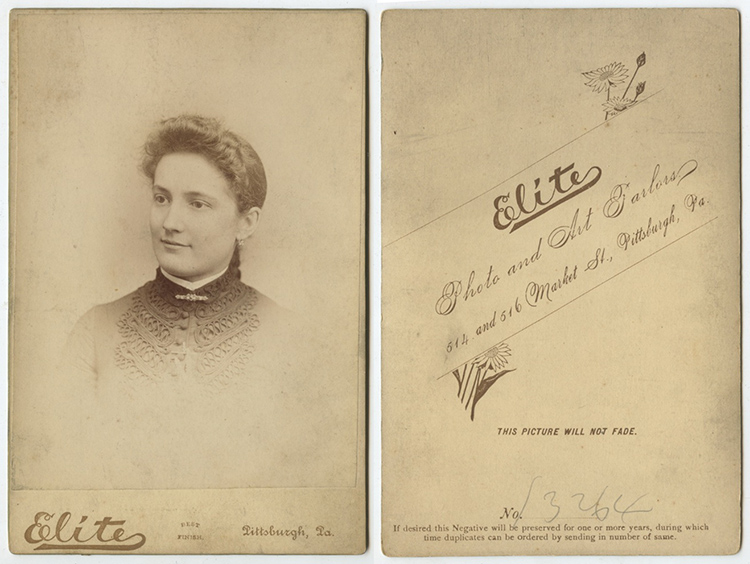 Elite
Pittsburgh, Pa.
Elite
Photo and Art Parlors
514 and 516 Market St., Pittsburgh, Pa.
THIS PICTURE WILL NOT FADE.
No. 13264
If desired this Negative will be preserved for one or more years, during which
time duplicates can be ordered by sending in number of same.